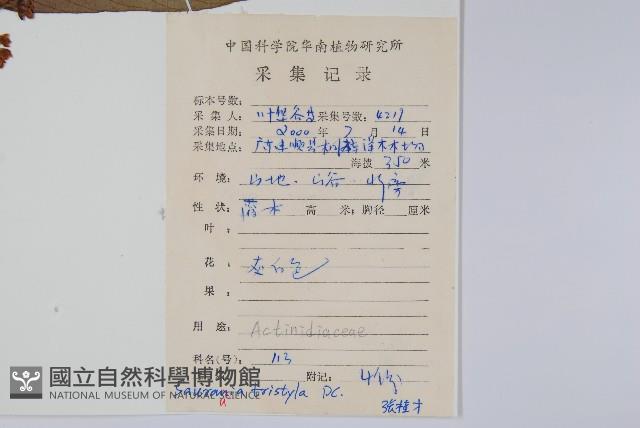 中国科学院华南植物研究所
采集记录
标本号数:
采集人: 叶华谷等 采集号数: 4219
采集日期: 2000 年 7 月 14 日
采集地点: 广东
海拔 350 米
环境: 山地、山谷、
性状: 灌木 高 米; 胸径 厘米
叶:
花: 灰白色
果:
用途: Actinidiaceae
科名(号): 113
附记: 4份
Saurauia tristyla DC.
u
张桂才
國立自然科學博物館
NATIONAL MUSEUM OF NATURAL SCIENCE